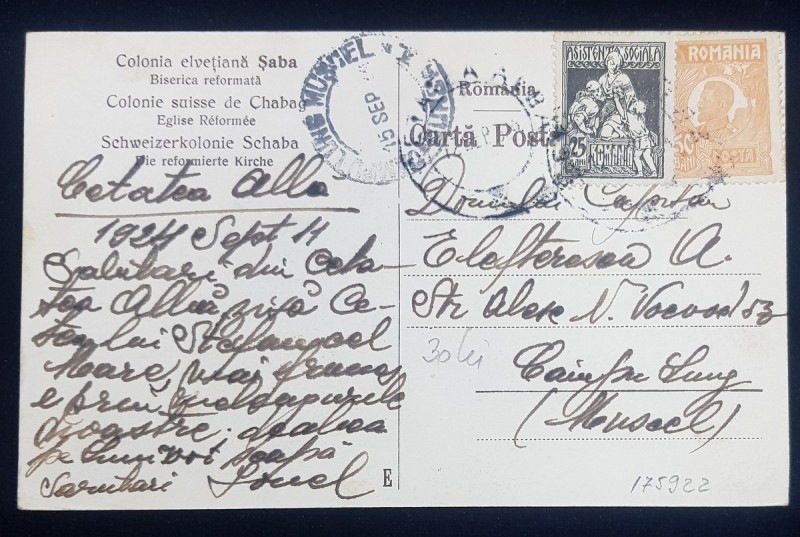 Colonia elvețiană Șaba
Biserica reformată
Colonie suisse de Chabag
Eglise Réformée
Schweizerkolonie Schaba
Die reformierte Kirche
Cetatea Albă
1924 Sept 11
Salutari din Ceta
tea Albă zisă Ce
tea lui Stefan cel
Mare, mai frumos
e prin
noastre. 
pe la noi
Salutari Ionel
E
CÂMPULUNG MUSCEL
15 SEP
România
Carta Postala
ASISTENȚA SOCIALA
25
BANI
ROMÂNIA
ROMANIA
50
BANI
POSTA
Domnului Capitan
Elefterescu A.
Str Alexe N. Voevod 52
Câmpu Lung
(Muscel)
30 lei
175922